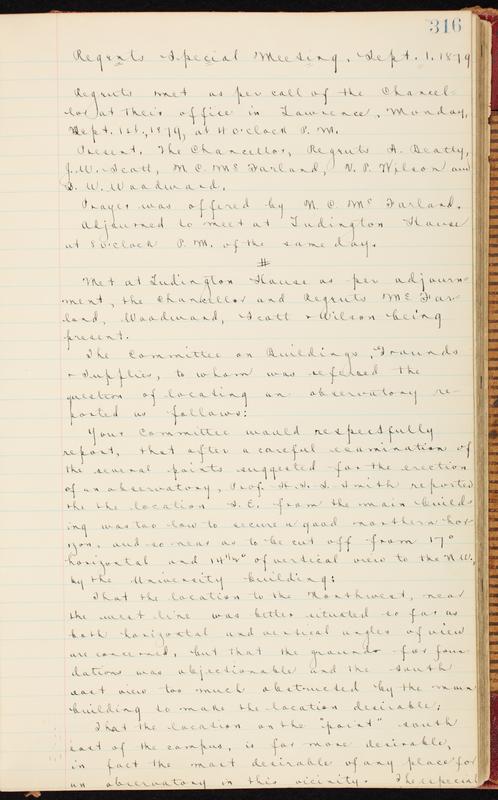 316
Regents Special Meeting, Sept. 1. 1879
Regents met as per call of the Chancel-
lor at their office in Lawrence, Monday,
Sept. 1st, 1879, at 4 o'clock P.M.
Present. The Chancellor, Regents A. Beatty,
J.W. Scott, N.C. McFarland, V.P. Wilson and
B. W. Woodward.
Prayer was offered by N.C. McFarland.
Adjourned to meet at Ludington House
at 8 o'clock P.M. of the same day.
#
Met at Ludington House as per adjourn-
ment, the Chancellor and Regents McFar-
land, Woodward, Scott & Wilson being
present.
The Committee on Buildings, Grounds
& Supplies, to whom was referred the
question of locating an observatory re-
ported as follows:
Your Committee would respectfully
report, that after a careful examination of
the several points suggested for the erection
of an observatory, Prof. H.S.S. Smith reported
the the location S.E. from the main build-
ing was too low to secure a good northern hor-
izon, and so near as to be cut off from 17°
horizontal and 14½° of vertical view to the N.W.,
by the University building;
That the location to the Northwest, near
the west line was better situated so far as
both horizontal and vertical angles of view
are concerned, but that the grounds for foun-
dations was objectionable and the south
east view too much obstructed by the main
building to make the location desirable;
That the location on the "point" south
east of the campus, is far more desirable,
in fact the most desirable of any place for
an observatory in this vicinity. The especial